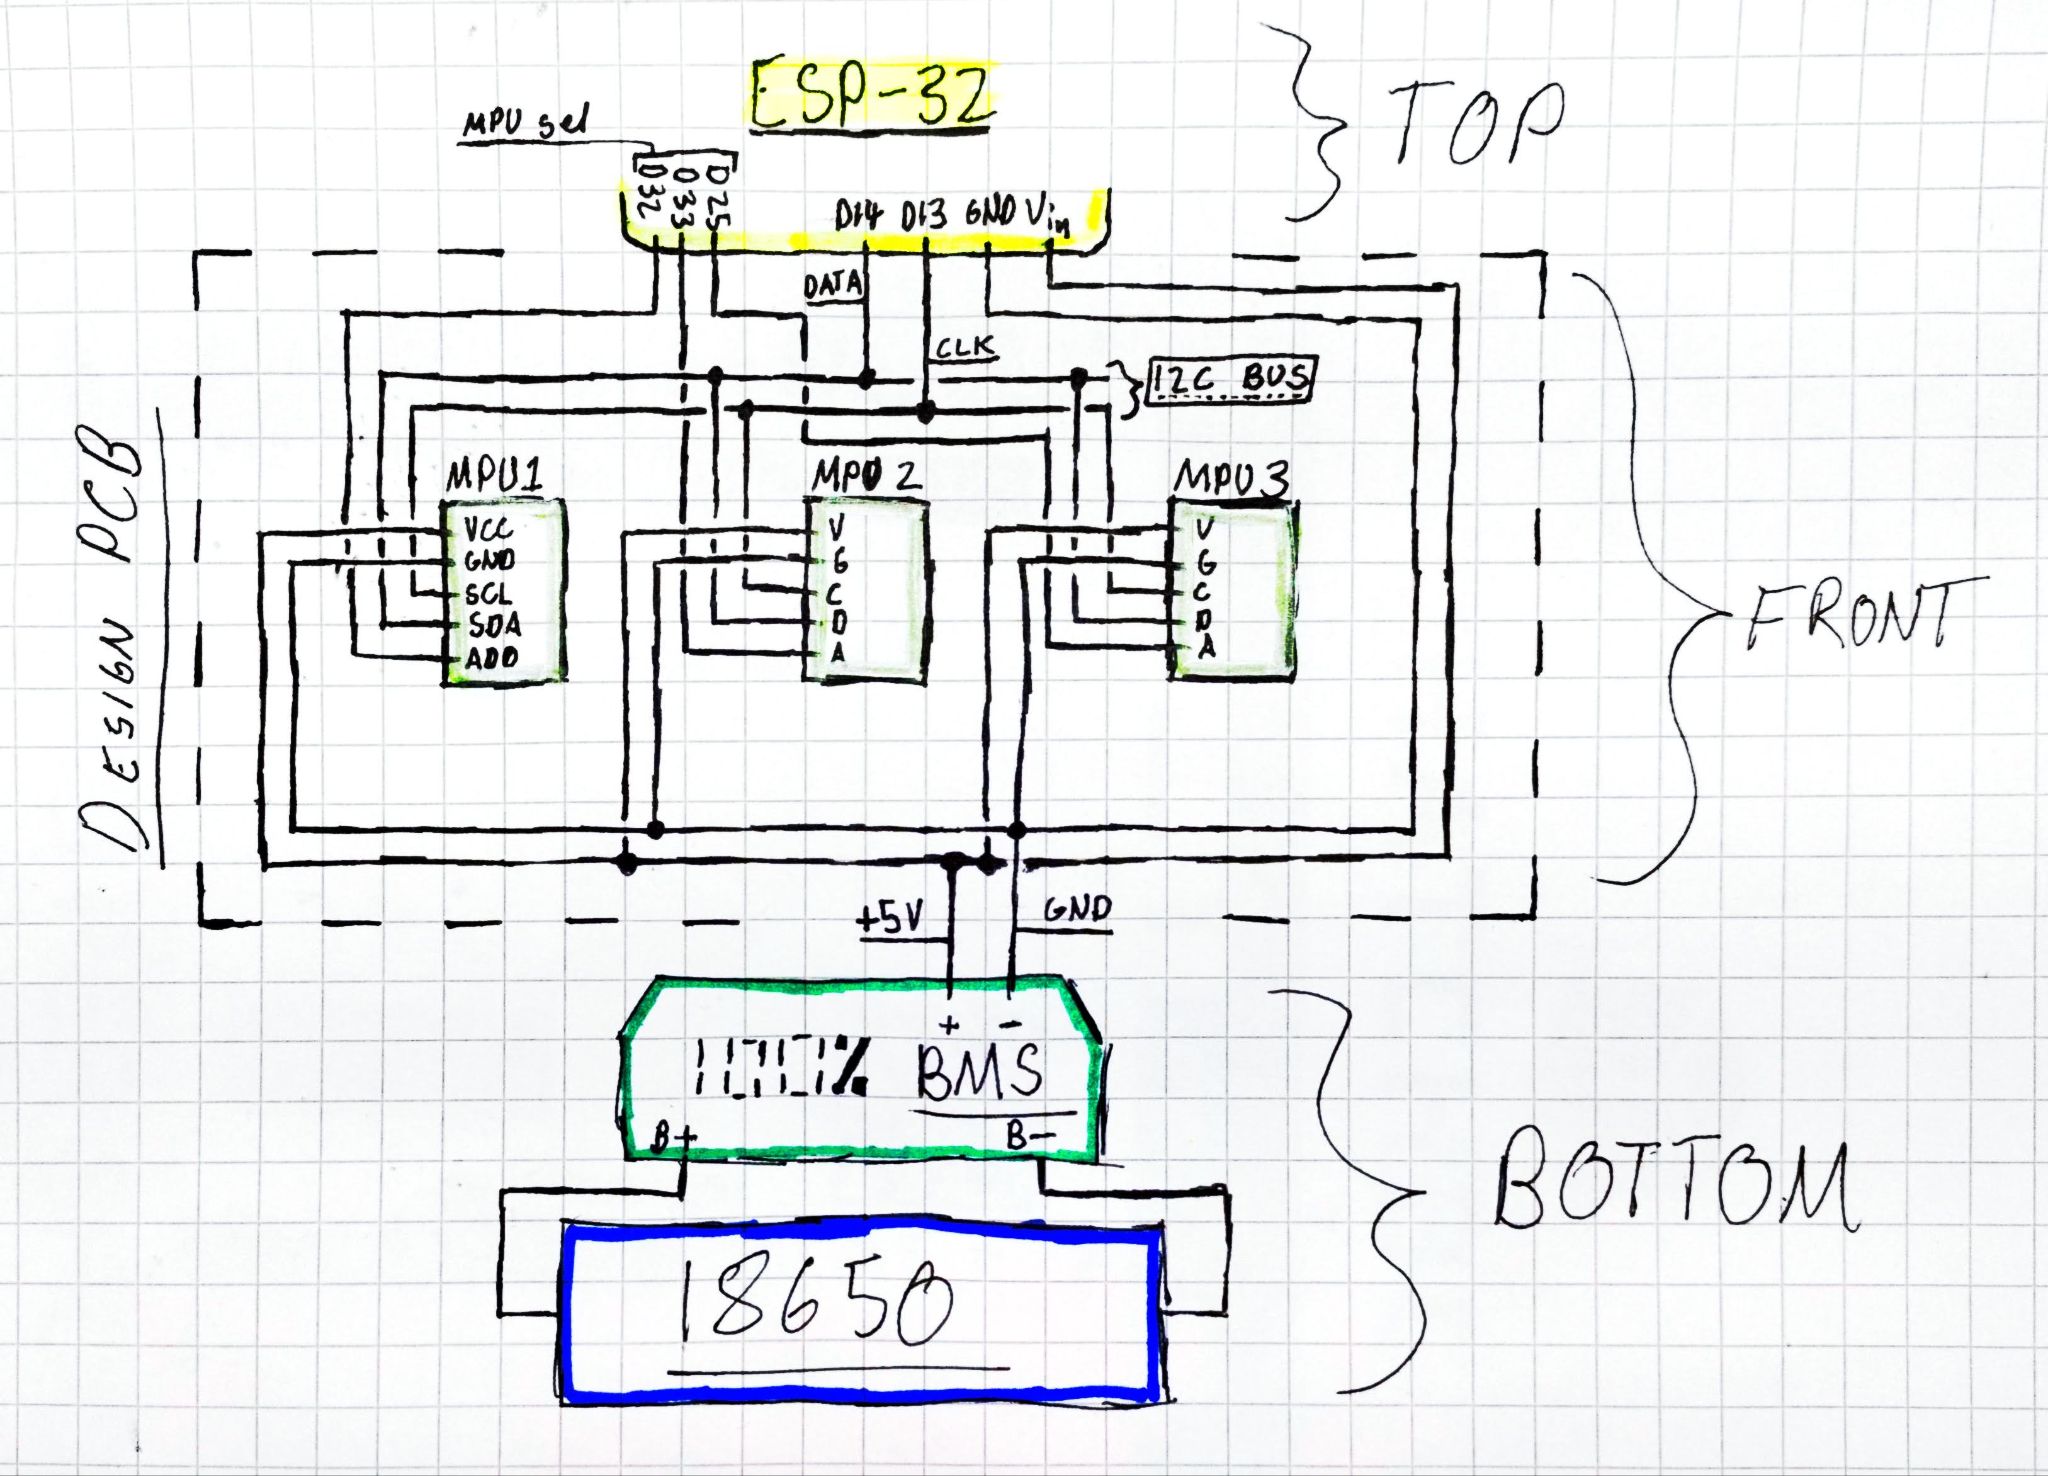 ESP-32
TOP
MPU sel
D32
D33
D25
D14 D13 GND Vin
DATA
CLK
I2C BUS
DESIGN PCB
MPU1
VCC
GND
SCL
SDA
ADD
MPU 2
V
G
C
D
A
MPU 3
V
G
C
D
A
FRONT
+5V
GND
+ -
100% BMS
B+ B-
BOTTOM
18650